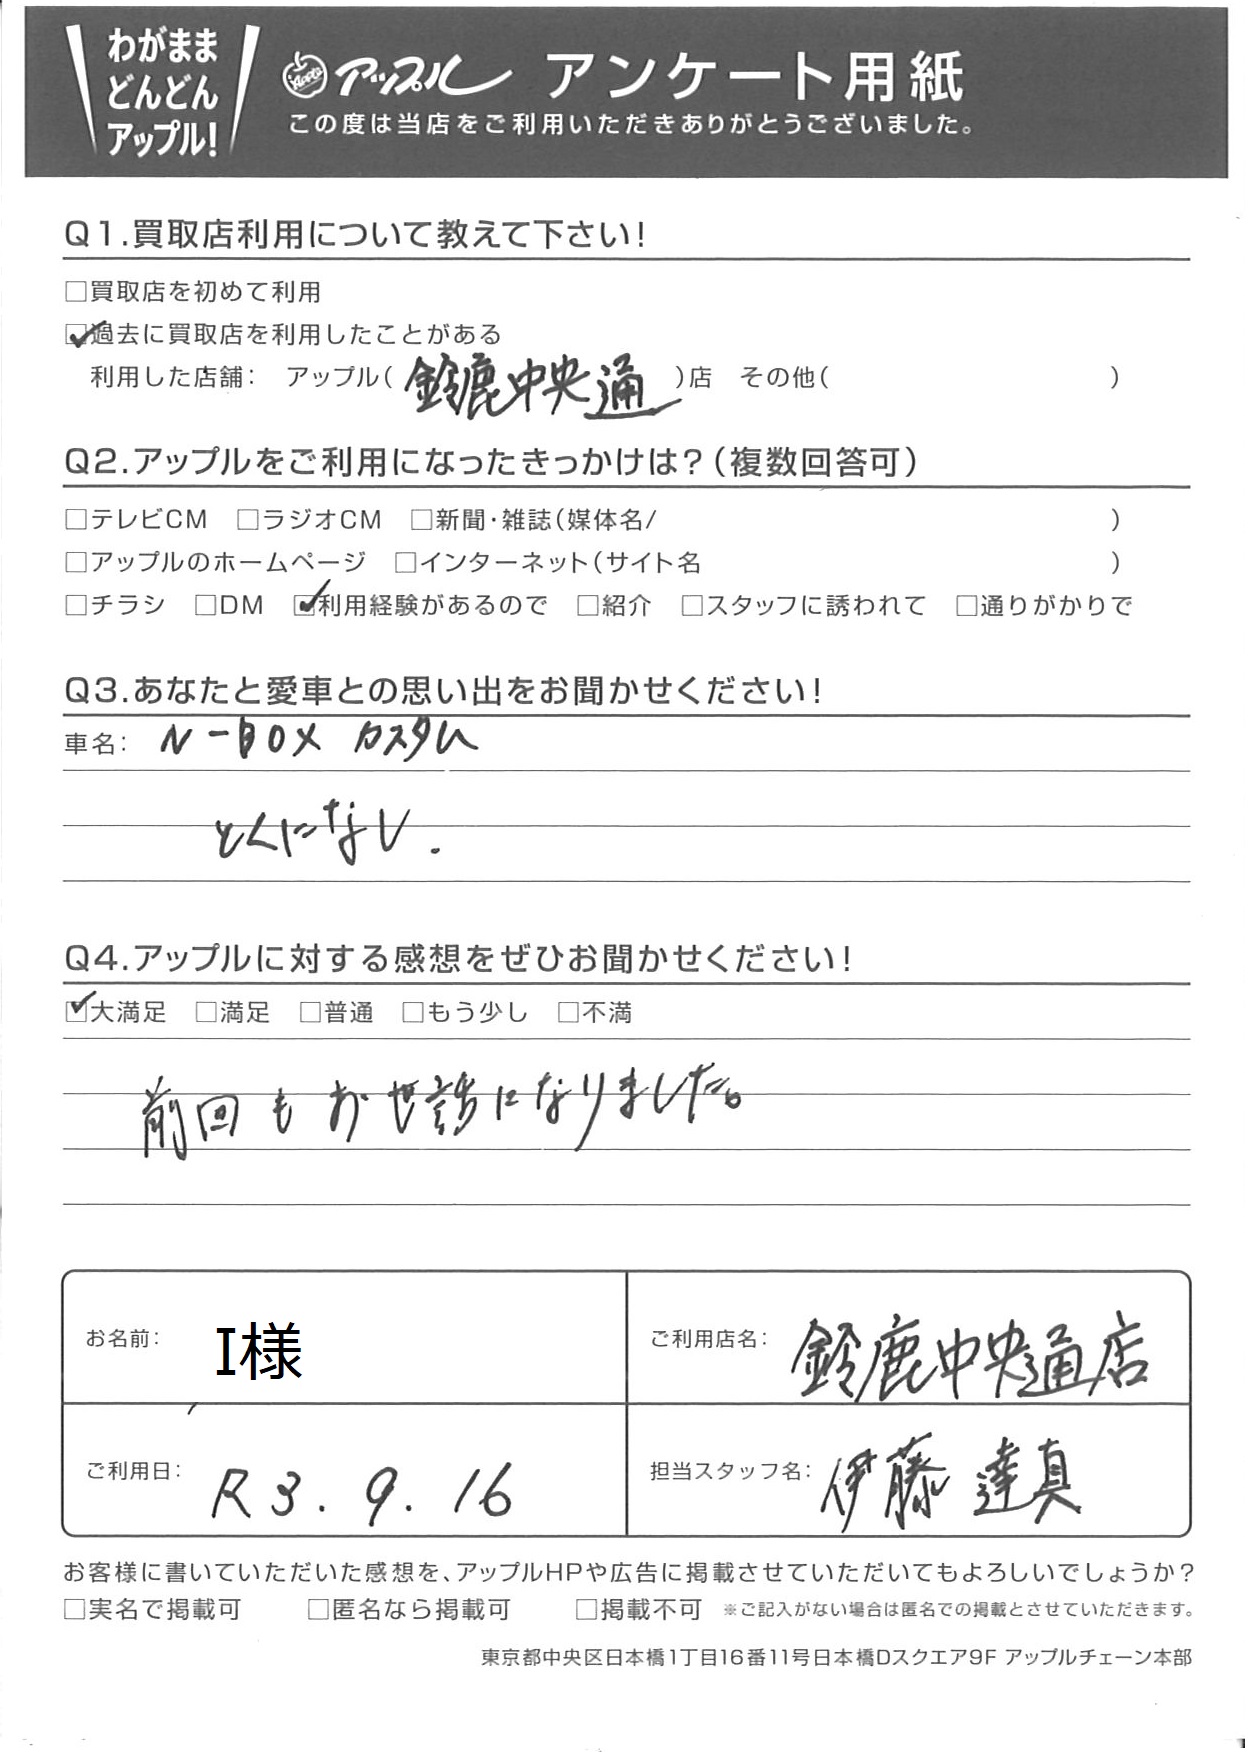 わがまま
どんどん
アップル!
Apple アップル アンケート用紙
この度は当店をご利用いただきありがとうございました。
Q1.買取店利用について教えて下さい!
□買取店を初めて利用
☑過去に買取店を利用したことがある
利用した店舗: アップル(鈴鹿中央通)店 その他( )
Q2.アップルをご利用になったきっかけは?(複数回答可)
□テレビCM □ラジオCM □新聞・雑誌(媒体名/ )
□アップルのホームページ □インターネット(サイト名 )
□チラシ □DM ☑利用経験があるので □紹介 □スタッフに誘われて □通りがかりで
Q3.あなたと愛車との思い出をお聞かせください!
車名: N-BOX カスタム
とくになし.
Q4.アップルに対する感想をぜひお聞かせください!
☑大満足 □満足 □普通 □もう少し □不満
前回もお世話になりました。
お名前: I様
ご利用店名: 鈴鹿中央通店
ご利用日: R3.9.16
担当スタッフ名: 伊藤 達真
お客様に書いていただいた感想を、アップルHPや広告に掲載させていただいてもよろしいでしょうか?
□実名で掲載可 □匿名なら掲載可 □掲載不可 ※ご記入がない場合は匿名での掲載とさせていただきます。
東京都中央区日本橋1丁目16番11号日本橋Dスクエア9F アップルチェーン本部